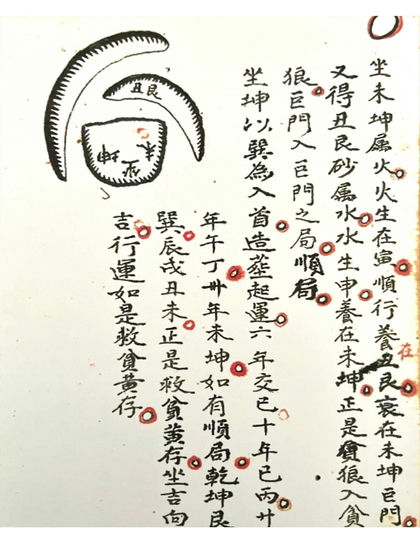 坐未坤属火火生在寅順行養丑艮衰在未坤巨門
在
又得丑艮砂属水水生申養在未坤正是貪狼入貪
狼巨門入巨門之局順局
坐坤以巽為入首造塟起運六年交巳十年巳丙廿
年午丁卅年未坤如有順局乾坤艮
巽辰戌丑未正是救貧黄存坐吉向
吉行運如是救貧黄存
丑艮
坐坤未